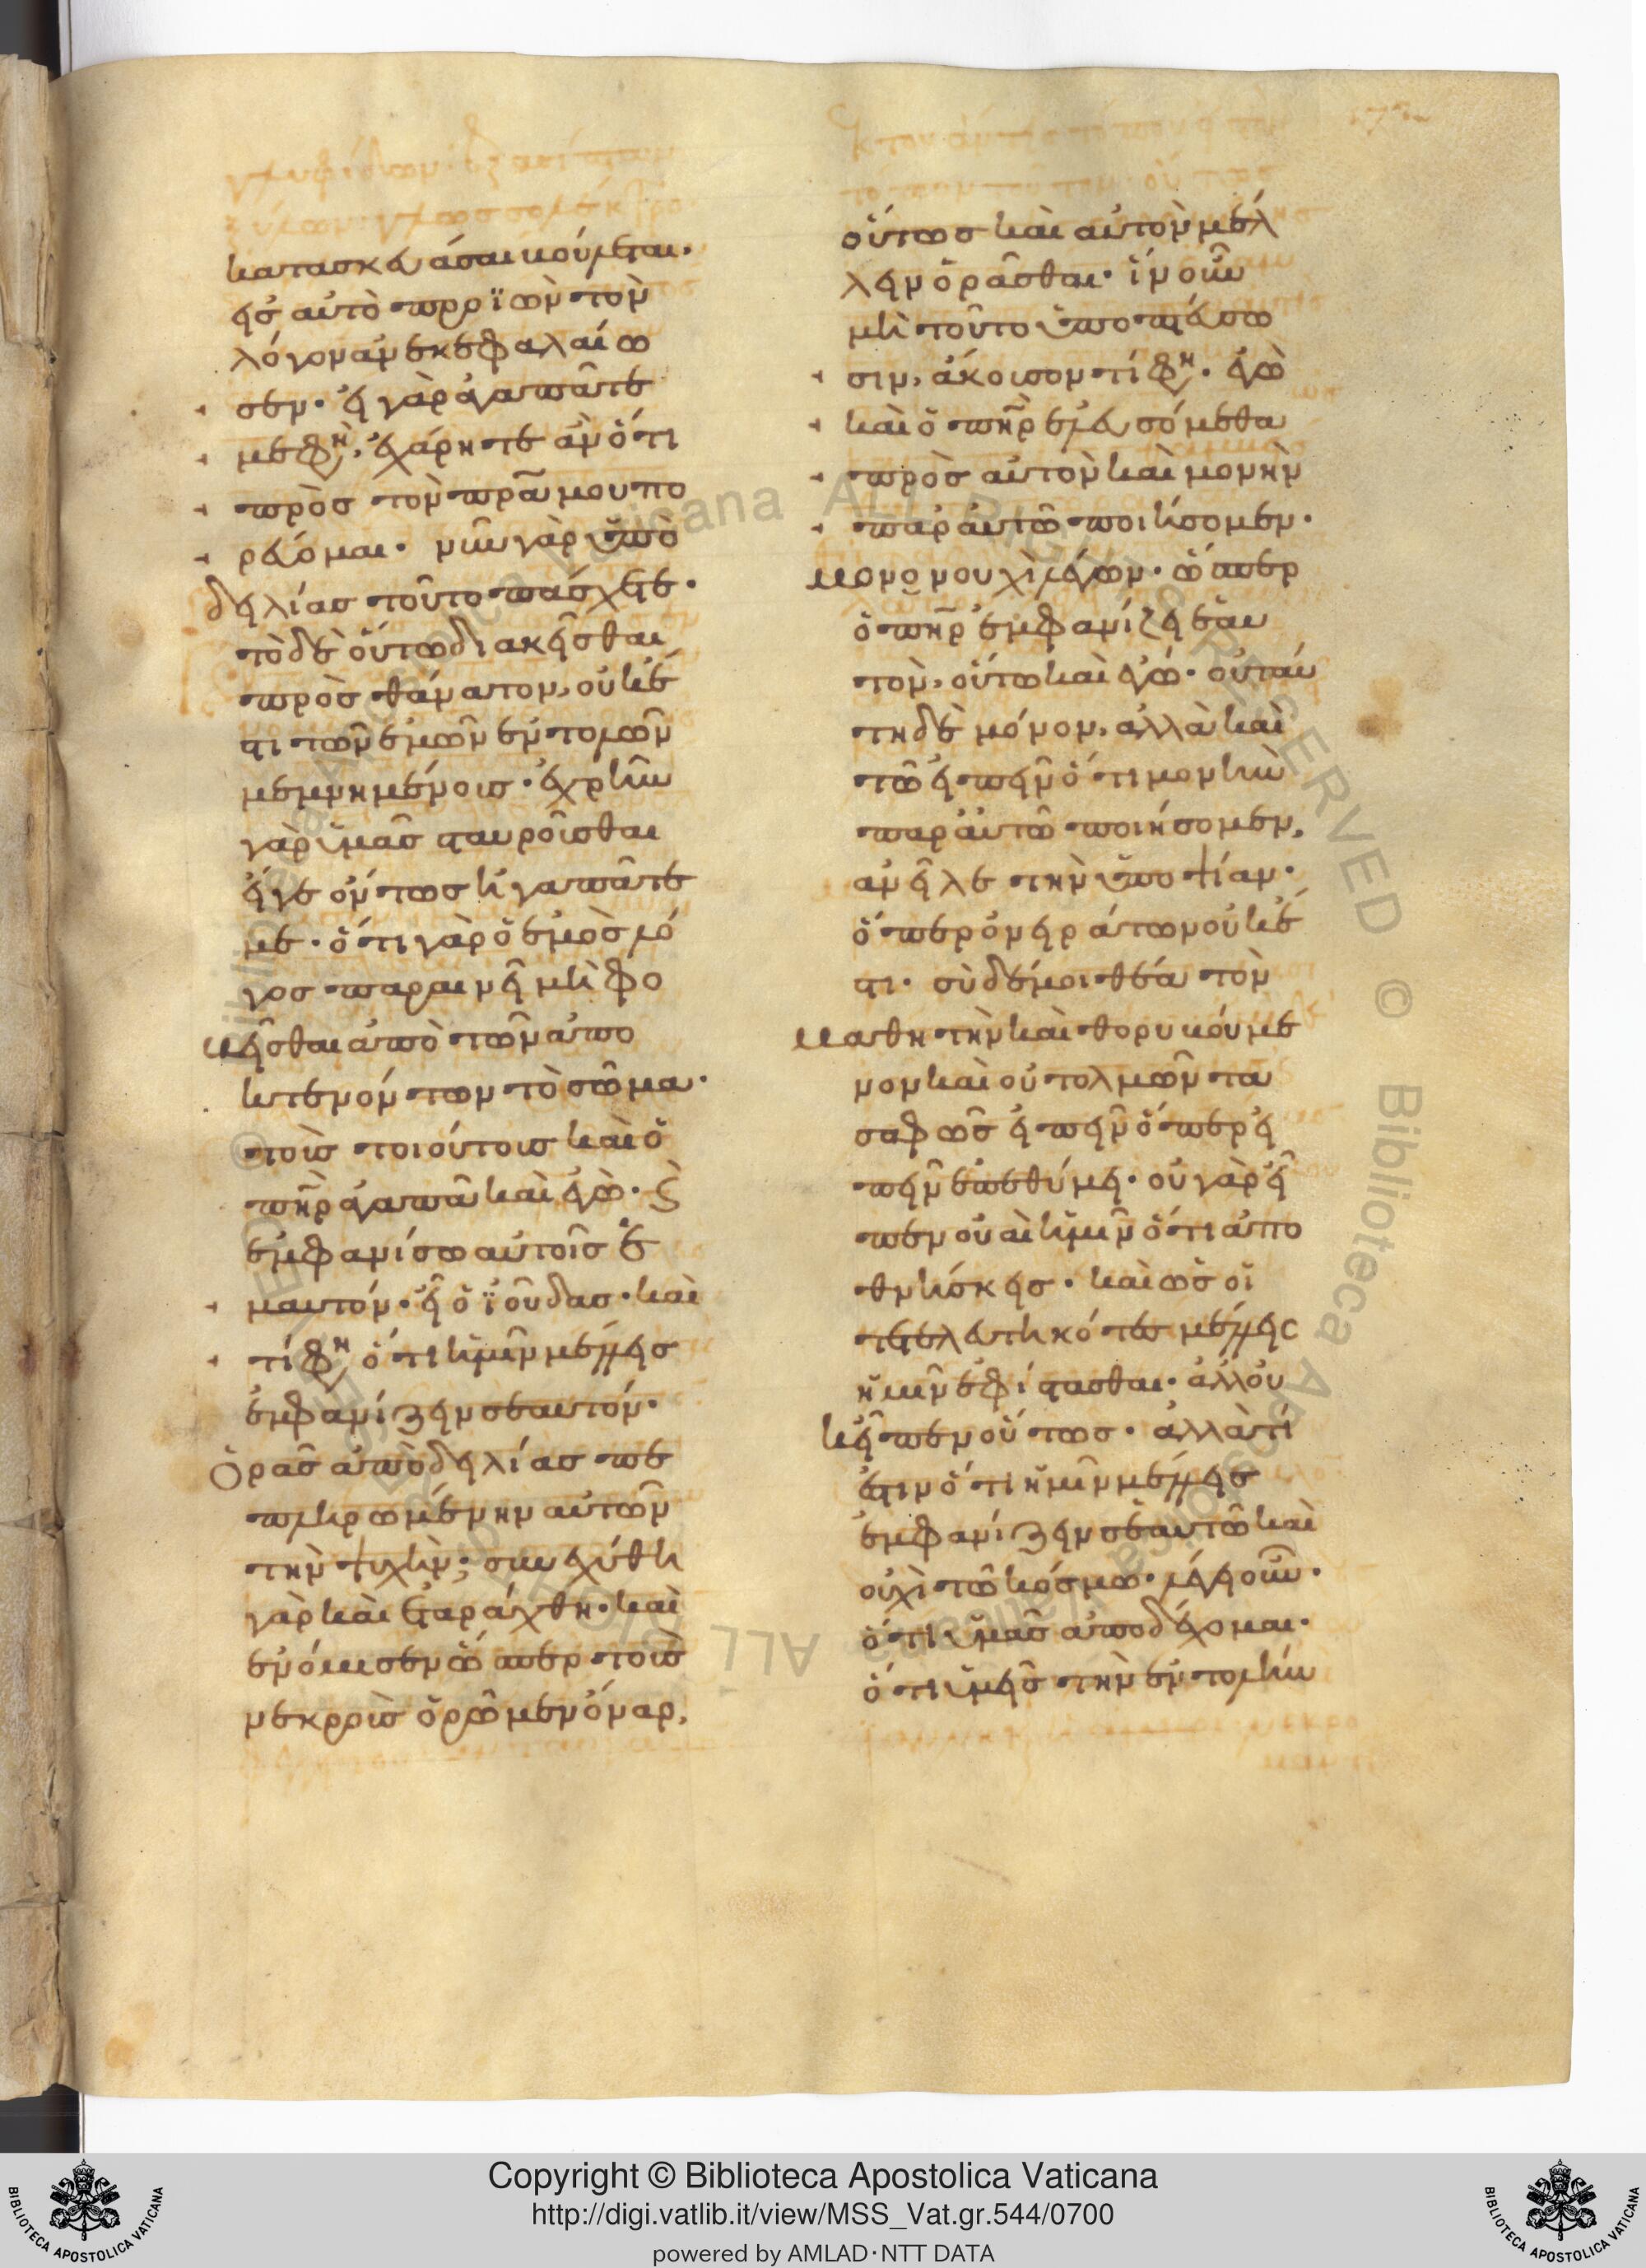 κατασκευάσαι βούλεται.
εἰς αὐτὸ προϊὼν τὸν
λόγον ἀνεκεφαλαίω
σεν. εἰ γὰρ ἀγαπᾶτέ
με φη, ἐχάρητε ἂν ὅτι
πρὸς τὸν πρᾶ μου πο
ρεύομαι. νῦν γὰρ ὑπὸ
δειλίας τοῦτο πάσχετε.
τὸ δὲ οὕτω διακεῖσθαι
πρὸς θάνατον, οὐκ ἔ
στι τῶν ἐμῶν ἐντολῶν
μεμνημένοις. ἐχρῆν
γὰρ ὑμᾶς σταυροῦσθαι
εἴγε ὄντως ἠγαπᾶτέ
με. ὅτι γὰρ ὁ ἐμὸς λό
γος παραινεῖ μὴ φο
βεῖσθαι ἀπὸ τῶν ἀπο
κτενόντων τὸ σῶμα.
τοὺς τοιούτους καὶ ὁ
πηρ ἀγαπᾶ καὶ ἐγώ. ϛ
ἐμφανίσω αὐτοῖς ἐ
μαυτόν. εἶ ὁ ϊούδας. καὶ
τί φη ὅτι ἡμῖν μέλλεις
ἐμφανίζειν σεαυτόν.
Ὁρᾶς ἀπὸ δειλίας πε
πληρωμένην αὐτῶν
τὴν ψυχήν; συνεχύθη
γὰρ καὶ ἐταράχθη. καὶ
ἐνόμισεν ὥσπερ τοὺς
νεκροὺς ὁρῶμεν ὄναρ,
οὕτως καὶ αὐτὸν μέλ
λειν ὁρᾶσθαι. ἵν οὖν
μὴ τοῦτο ὑποπτεύσω
σιν, ἄκουσον τί φη. ἐγὼ
καὶ ὁ πηρ ἐλευσόμεθα
πρὸς αὐτὸν καὶ μονὴν
παρ αὐτῶ ποιήσομεν.
μονονουχὶ λέγων. ὥσπερ
ὁ πηρ ἐμφανίζει ἑαυ
τὸν, οὕτω καὶ ἐγώ. οὐ ταύ
τη δὲ μόνον, ἀλλὰ καὶ
τῶ εἰπεῖν ὅτι μονὴν
παρ αὐτῶ ποιήσομεν,
ἀνεῖλε τὴν ὑποψίαν.
ὅπερ ὀνειράτων οὐκ ἔ
στι. σὺ δέ μοι θέα τὸν
μαθητὴν καὶ θορυβούμε
νον καὶ οὐ τολμῶντα
σαφῶς εἰπεῖν ὅπερ εἰ
πεῖν ἐπεθύμει. οὐ γὰρ εἶ
πεν οὐαὶ ἡμῖν ὅτι ἀπο
θνήσκεις. καὶ ὡς οἱ
τετελευτηκότες μέλλεις
ἡμῖν ἐφίστασθαι. ἀλλ οὐ
κ εἶπεν οὕτως. ἀλλὰ τί
ἐστιν ὅτι ἡμῖν μέλλεις
ἐμφανίζειν σεαυτῶ καὶ
οὐχὶ τῶ κόσμω. λέγει οὖν.
ὅτι ὑμᾶς ἀποδέχομαι.
ὅτι ὑμεῖς τὴν ἐντολὴν
Copyright © Biblioteca Apostolica Vaticana
http://digi.vatlib.it/view/MSS_Vat.gr.544/0700
powered by AMLAD·NTT DATA